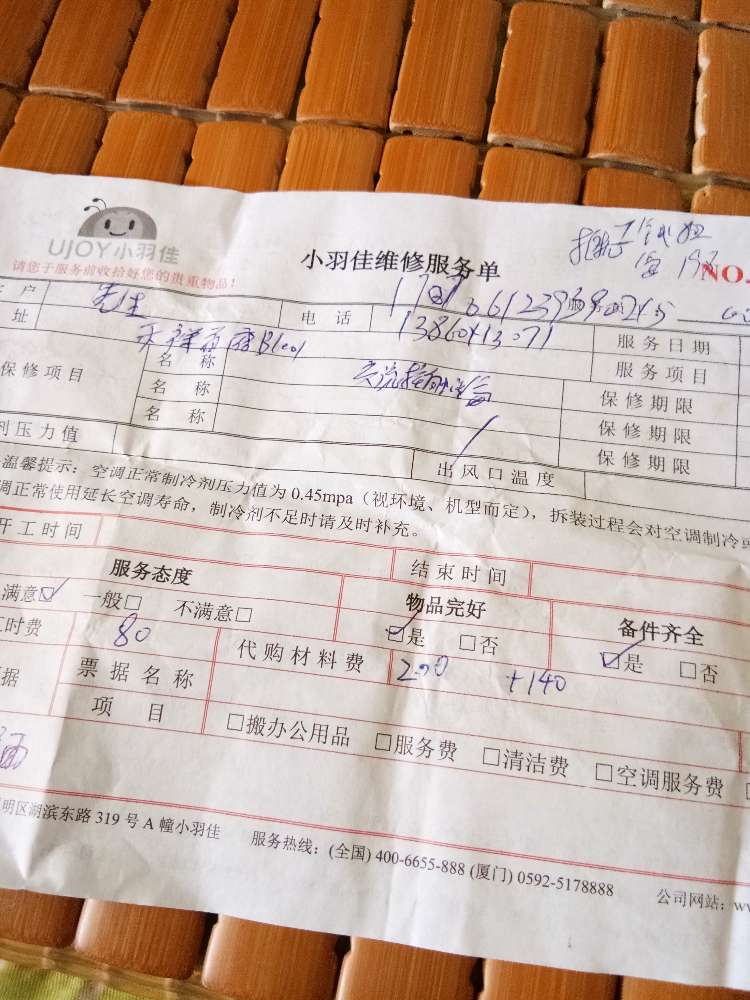 UJOY小羽佳
请您于服务前收拾好您的贵重物品!
小羽佳维修服务单
NO.
客户 先生 电话
址 13860413071 服务日期
服务项目
保修项目 名称 保修期限
名称 保修期限
名称 保修期限
剂压力值 出风口温度
温馨提示:空调正常制冷剂压力值为0.45mpa(视环境、机型而定),拆装过程会对空调制冷
调正常使用延长空调寿命,制冷剂不足时请及时补充。
开工时间 结束时间
服务态度 物品完好 备件齐全
满意☑ 一般□ 不满意□ ☑是 □否 ☑是 □否
工时费 80 代购材料费 200 +140
据 票据名称
项目 □搬办公用品 □服务费 □清洁费 □空调服务费
明区湖滨东路319号A幢小羽佳 服务热线:(全国) 400-6655-888 (厦门) 0592-5178888 公司网站: